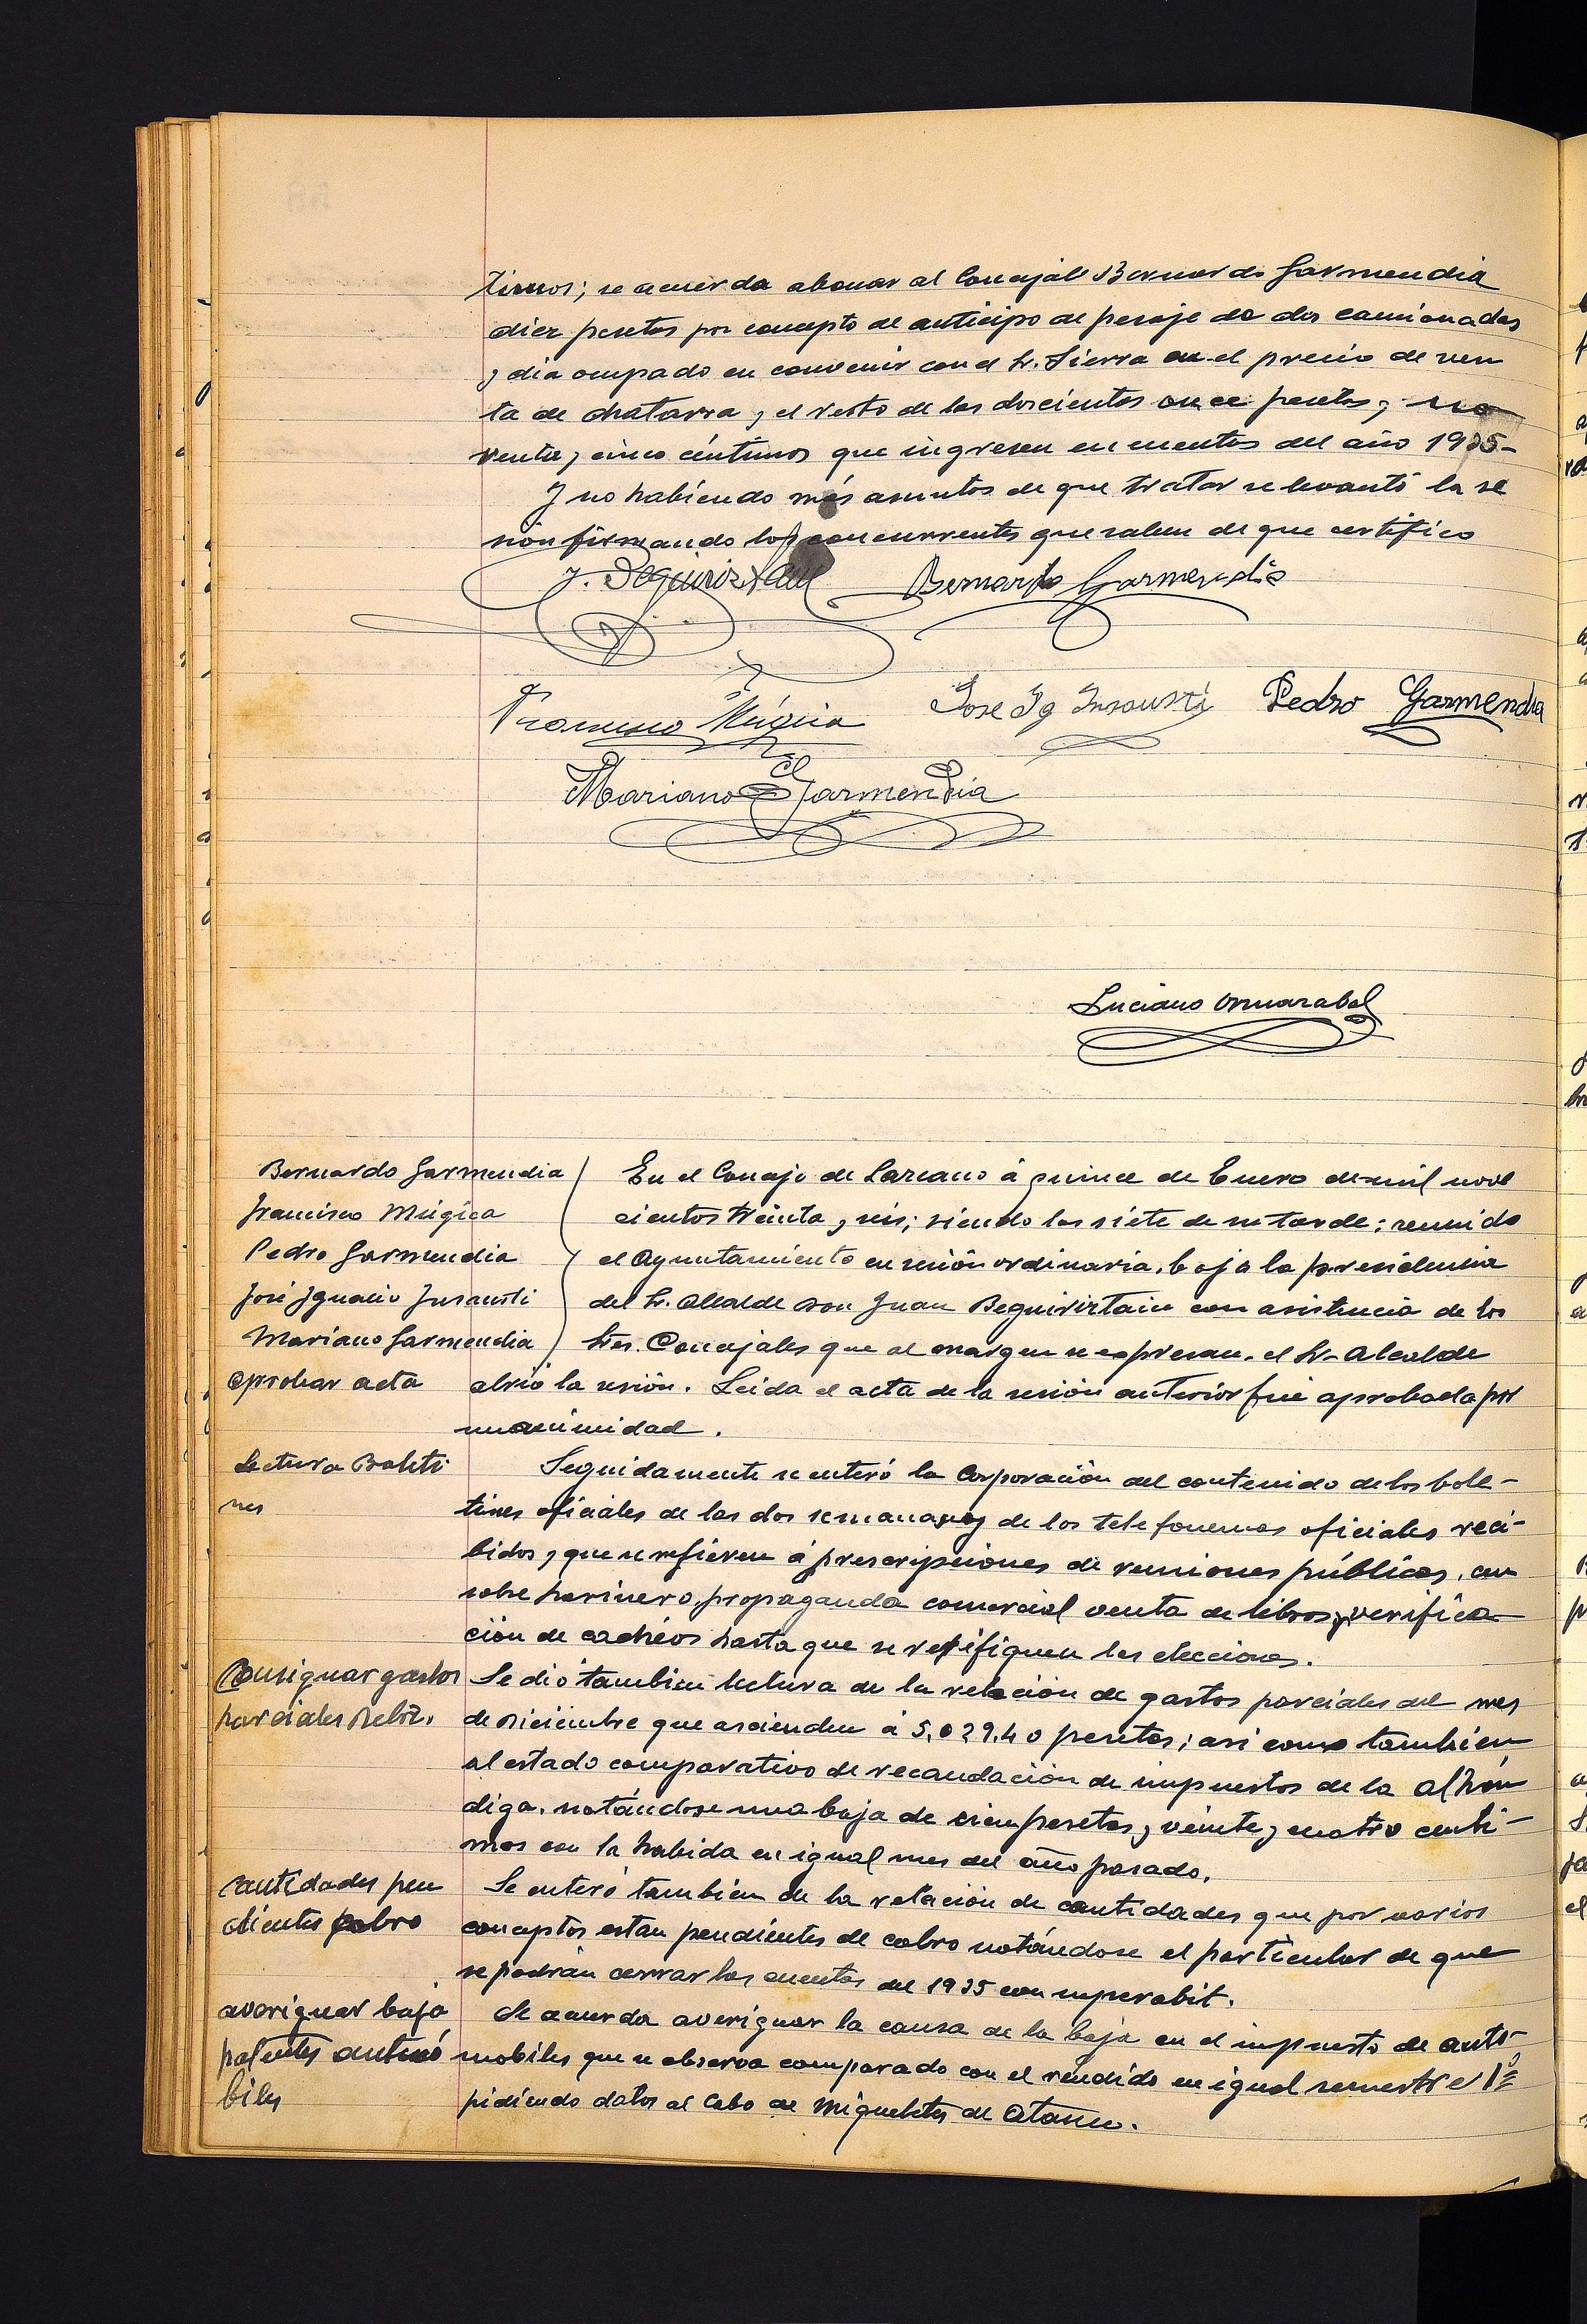 timos; se acuerda abonar al Concejal Bernardo Garmendia
diez pesetas por concepto de anticipo de pesaje de dos camionadas
y dia ocupado en convenir con el Sr. Sierra en el precio de ven
ta de chatarra, y el resto de las doscientas once pesetas, y no
venta y cinco céntimos que ingresen en cuentas del año 1935-
Y no habiendo más asuntos de que tratar se levantó la se
sión firmando los concurrentes que saben de que certifico
J. Beguiriztain Bernardo Garmendia
Francisco Múgica Jose Ig Insausti Pedro Garmendia
Mariano Garmendia
Luciano
Bernardo Garmendia
Francisco Múgica
Pedro Garmendia
José Ignacio Insausti
Mariano Garmendia
En el Concejo de Lazcano á quince de Enero de mil nove
cientos treinta y seis; siendo las siete de su tarde; reunido
el Ayuntamiento en sesión ordinaria, bajo la presidencia
del Sr. Alcalde Don Juan Beguiristain con asistencia de los
Sres. Concejales que al margen se expresan. el Sr. Alcalde
Aprobar acta
abrió la sesión. Leida el acta de la sesión anterior fué aprobada por
unanimidad.
Lectura Boleti
nes
Seguidamente se enteró la Corporación del contenido de los bole-
tines oficiales de las dos semanas y de los telefonemas oficiales reci-
bidos y que se refieren á prescripciones de reuniones públicas, cu
sobre harinero, propaganda comercial venta de libros y verifica
ción de cacheos hasta que se verifiquen las elecciones.
Consignar gastos
parciales Dicbr.
Se dió tambien lectura de la relación de gastos parciales del mes
de Diciembre que ascienden á 5,029.40 pesetas; asi como tambien
al estado comparativo de recaudación de impuestos de la alhón
diga, notándose una baja de cien pesetas y veinte y cuatro centi-
mos con la habida en igual mes del año pasado.
Cantidades pen
dientes cobro
Se enteró tambien de la relación de cantidades que por varios
conceptos estan pendientes de cobro notándose el particular de que
se podrán cerrar las cuentas del 1935 con superabit.
averiguar baja
patentes automó
biles
Se acuerda averiguar la causa de la baja en el impuesto de auto-
mobiles que se observa comparado con el rendido en igual semestre 1º
pidiendo datos al Cabo de Miqueletes de Ataun.